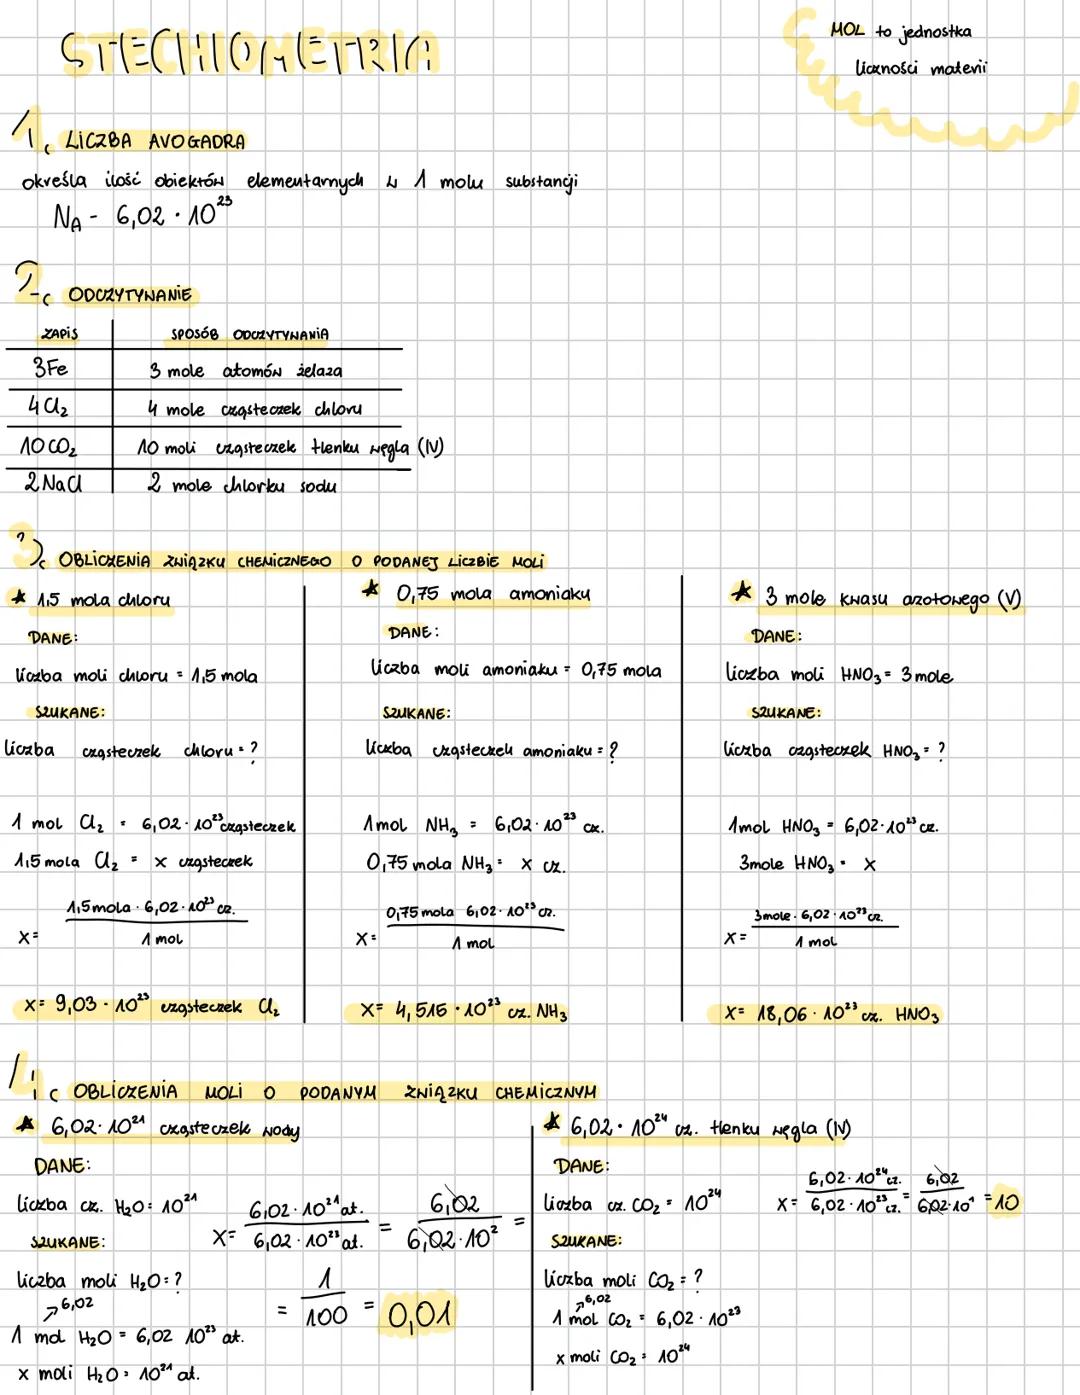 STECHIOMETRIA
MOL to jednostka
liczności materii
1. LICZBA AVOGADRA
określa ilość obiektów elementarnych w 1 molu substancji
N_A - 6,02 · 10²³
2. ODCZYTYWANIE
ZAPIS SPOSÓB ODCZYTYWANIA
3Fe 3 mole atomów żelaza
4Cl₂ 4 mole cząsteczek chloru
10CO₂ 10 moli cząsteczek tlenku węgla (IV)
2NaCl 2 mole chlorku sodu
3. OBLICZENIA ZWIĄZKU CHEMICZNEGO O PODANEJ LICZBIE MOLI
* 1,5 mola chloru
DANE:
liczba moli chloru = 1,5 mola
SZUKANE:
liczba cząsteczek chloru = ?
1 mol Cl₂ = 6,02 · 10²³ cząsteczek
1,5 mola Cl₂ = x cząsteczek
x = 1,5 mola · 6,02 · 10²³ cz. / 1 mol
x = 9,03 · 10²³ cząsteczek Cl₂
* 0,75 mola amoniaku
DANE:
liczba moli amoniaku = 0,75 mola
SZUKANE:
liczba cząsteczek amoniaku = ?
1 mol NH₃ = 6,02 · 10²³ cz.
0,75 mola NH₃ = x cz.
x = 0,75 mola 6,02 · 10²³ cz. / 1 mol
x = 4,515 · 10²³ cz. NH₃
* 3 mole kwasu azotowego (V)
DANE:
liczba moli HNO₃ = 3 mole
SZUKANE:
liczba cząsteczek HNO₃ = ?
1 mol HNO₃ = 6,02 · 10²³ cz.
3 mole HNO₃ = x
x = 3 mole · 6,02 · 10²³ cz. / 1 mol
x = 18,06 · 10²³ cz. HNO₃
4. OBLICZENIA MOLI O PODANYM ZWIĄZKU CHEMICZNYM
* 6,02 · 10²¹ cząsteczek wody
DANE:
liczba cz. H₂O = 10²¹
SZUKANE:
liczba moli H₂O = ?
6,02
1 mol H₂O = 6,02 10²³ at.
x moli H₂O = 10²¹ at.
x = 6,02 · 10²¹ at. / 6,02 · 10²³ at. = 6,02 / 6,02 · 10² =
= 1 / 100 = 0,01
* 6,02 · 10²⁴ cz. tlenku węgla (IV)
DANE:
liczba cz. CO₂ = 10²⁴
SZUKANE:
liczba moli CO₂ = ?
6,02
1 mol CO₂ = 6,02 · 10²³
x moli CO₂ = 10²⁴
x = 6,02 · 10²⁴ cz. / 6,02 · 10²³ cz. = 6,02 / 6,02 · 10¹ = 10